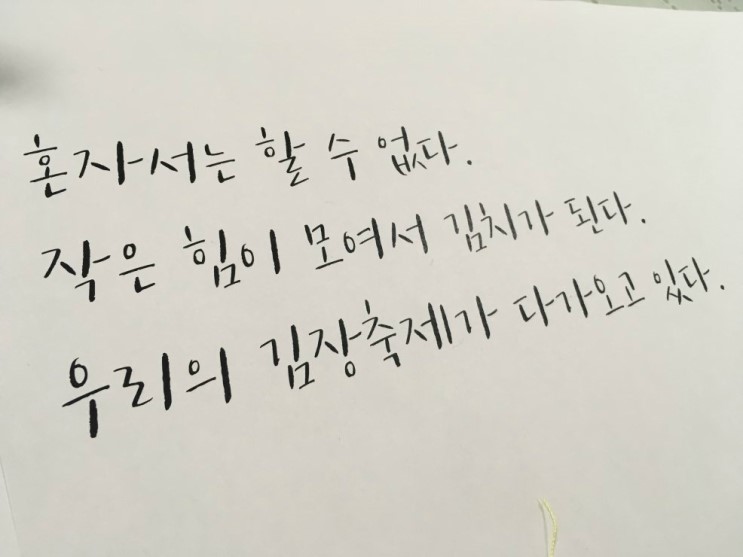 혼자서는 할 수 없다.
작은 힘이 모여서 김치가 된다.
우리의 김장축제가 다가오고 있다.